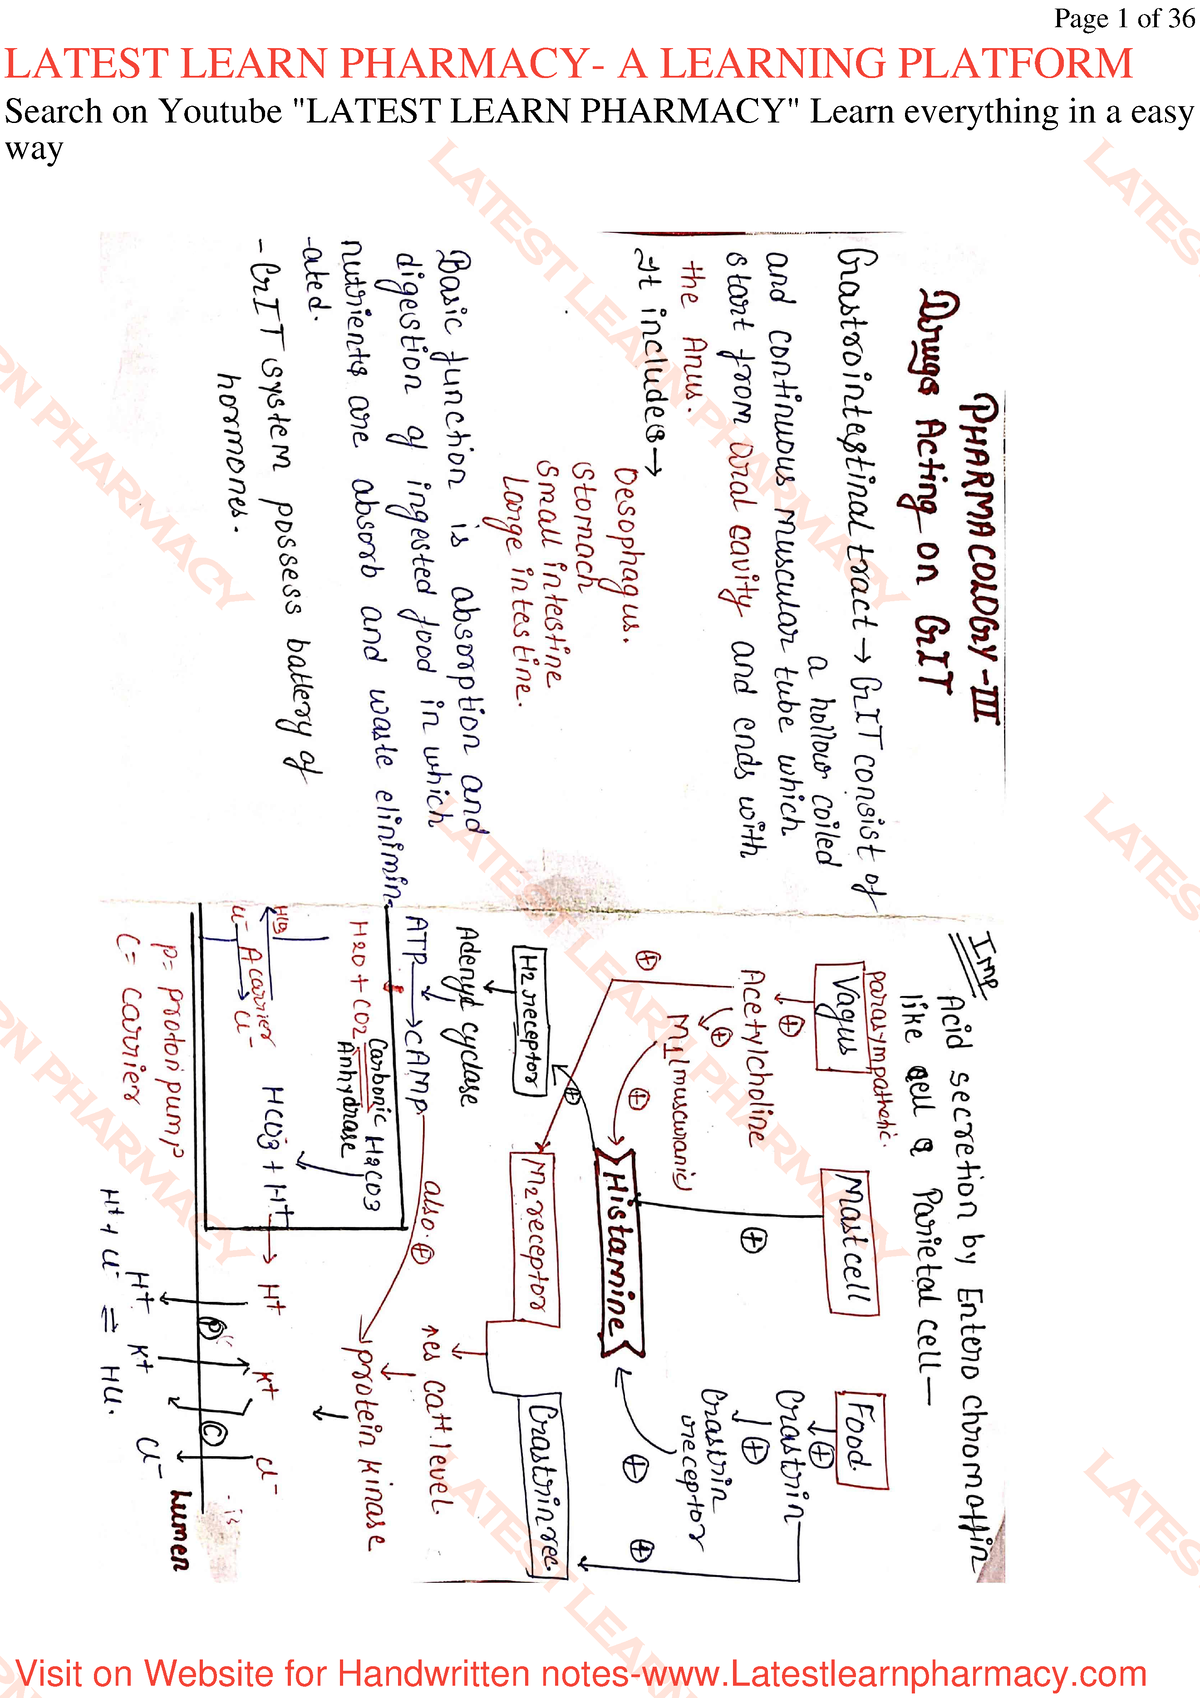 Page 1 of 36
LATEST LEARN PHARMACY- A LEARNING PLATFORM
Search on Youtube "LATEST LEARN PHARMACY" Learn everything in a easy
way
PHARMACOLOGY-III
Drugs Acting on GIT
Gastrointestinal tract → GIT consist of
a hollow coiled
and continuous muscular tube which
start from oral cavity and ends with
the Anus.
It includes →
Oesophagus.
Stomach
Small intestine
Large intestine.
Basic function is absorption and
digestion of ingested food in which
nutrients are absorb and waste elinimin-
-ated.
- GIT system possess battery of
hormones.
Imp
Acid secretion by Entero chromaffin
like cell & Parietal cell—
parasympathetic.
Vagus
Mast cell
Food.
⊕
⊕
Acetylcholine
Gastrin
⊕
⊕
M1(muscuranic)
Gastrin
receptor
⊕
⊕
⊕
⊕
⊕
Histamine
⊕
H2 receptor
M2 receptor
Gastrin rec.
Adenyl cyclase
ATP → cAMP
also ⊕
↑es Ca++ level.
protein kinase
H2O + CO2
Carbonic
Anhydrase
H2CO3
HCO3
HCO3 + H+ → H+
K+
Cl-
Cl- A carrier Cl-
P
C
H+
K+
Cl-
Lumen
P= proton pump
C= carrier
H+ + Cl- ⇌ HCl.
Visit on Website for Handwritten notes-www.Latestlearnpharmacy.com
LATEST LEARN PHARMACY